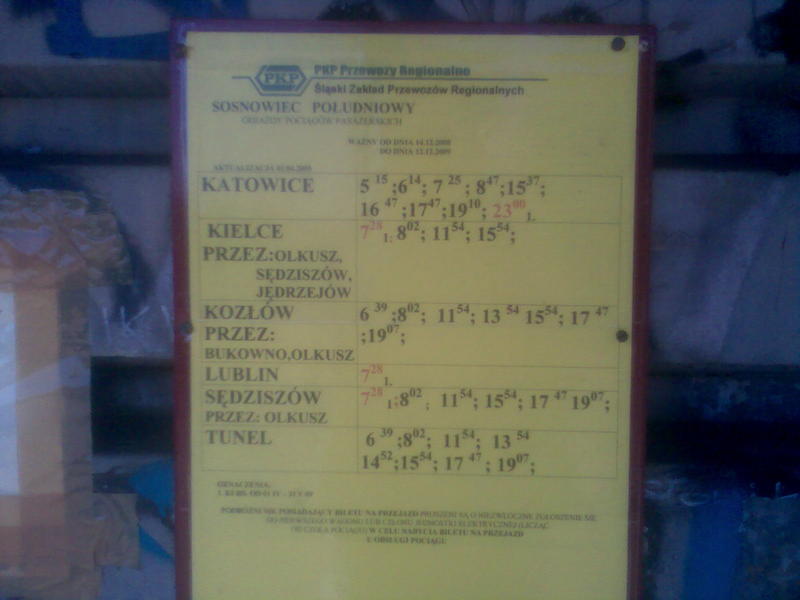 PKP
PKP Przewozy Regionalne
Śląski Zakład Przewozów Regionalnych
SOSNOWIEC POŁUDNIOWY
ODJAZDY POCIĄGÓW PASAŻERSKICH
WAŻNY OD DNIA 14.12.2008
DO DNIA 12.12.2009
AKTUALIZACJA
KATOWICE 5 15 ;6 14; 7 25 ; 8 47;15 37;
16 47 ;17 47;19 10; 23 00 1.
KIELCE 7 28 1; 8 02; 11 54; 15 54;
PRZEZ:OLKUSZ,
SĘDZISZÓW,
JĘDRZEJÓW
KOZŁÓW 6 39 ;8 02; 11 54; 13 54 15 54; 17 47
PRZEZ: ;19 07;
BUKOWNO,OLKUSZ
LUBLIN 7 28 1.
SĘDZISZÓW 7 28 1;8 02 ; 11 54; 15 54; 17 47 19 07;
PRZEZ: OLKUSZ
TUNEL 6 39 ;8 02; 11 54; 13 54
14 52;15 54; 17 47 ; 19 07;
OZNACZENIA:
PODRÓŻNI NIE POSIADAJĄCY BILETU NA PRZEJAZD PROSZENI SĄ O NIEZWŁOCZNE ZGŁOSZENIE SIĘ
DO PIERWSZEGO WAGONU LUB CZŁONU JEDNOSTKI ELEKTRYCZNEJ (LICZĄC
OD CZOŁA POCIĄGU) W CELU NABYCIA BILETU NA PRZEJAZD
U OBSŁUGI POCIĄGU